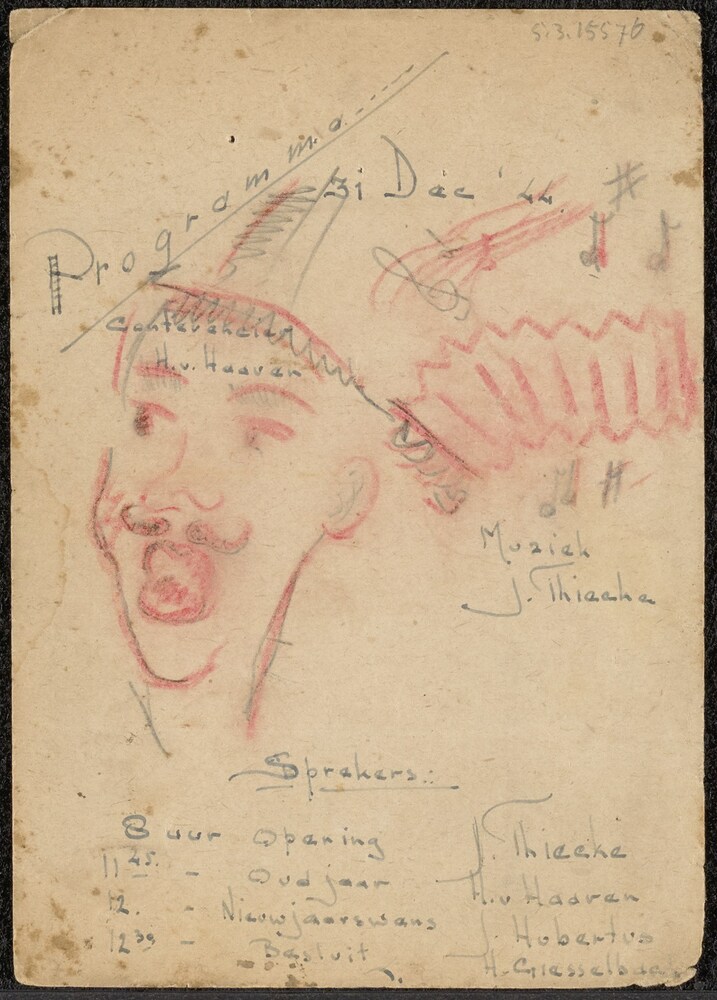 5.3.15576
Programma.......
31 Dec '44
Conferencier
H.v. Haaren
Muziek
J. Thieeke
Sprekers:
8 uur Opening J. Thieeke
11 45. - Oud jaar H.v Haaren
12. - Nieuwjaarswens J. Hubertus
12 30 - Besluit H. Giesselbac